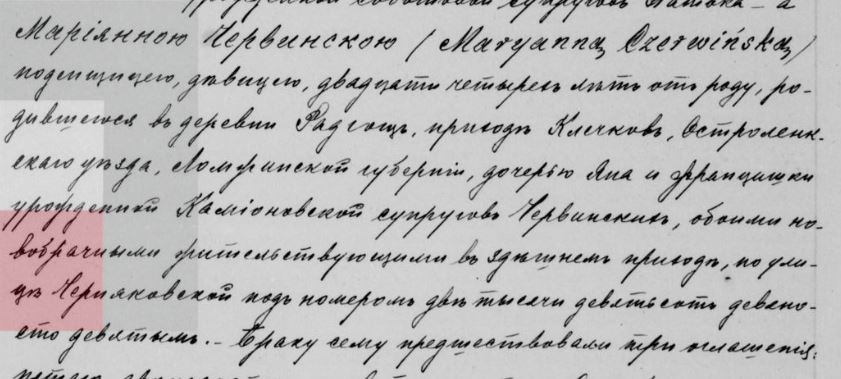 супруговъ
Маріянною Червинскою / Maryanną Czerwińską /
дѣвицею, двадцати четырехъ лѣтъ отъ роду, ро-
дившеюся въ деревни Радгощь, приходѣ Клечковъ, Остроленк-
скаго уѣзда, Ломжинской губерніи, дочерью Яна и Францишки
урожденной Каміоновской супруговъ Червинскихъ, обоими но-
вобрачными жительствующими въ здѣшнемъ приходѣ, по ули-
цѣ Черняковской подъ номеромъ двѣ тысячи девятьсотъ девяно-
сто девятымъ. – Браку сему предшествовали три оглашенія: